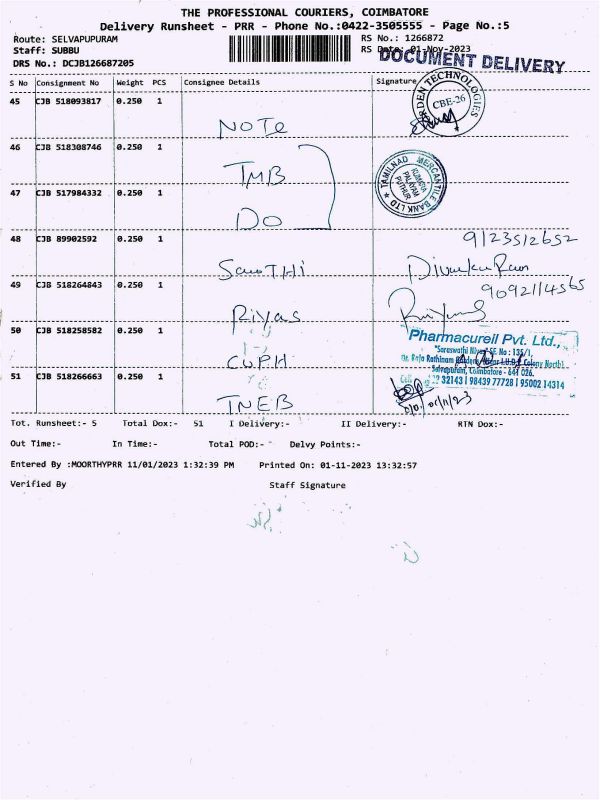 THE PROFESSIONAL COURIERS, COIMBATORE
Delivery Runsheet - PRR - Phone No.:0422-3505555 - Page No.:5
Route: SELVAPUPURAM
RS No.: 1266872
Staff: SUBBU
RS Date: 01-Nov-2023
DRS No.: DCJB126687205
DOCUMENT DELIVERY
S No Consignment No Weight PCS Consignee Details Signature
45 CJB 518093817 0.250 1 NOTE
TECHNOLOGIES
CBE-26
46 CJB 518308746 0.250 1 TMB
TAMILNAD MERCANTILE BANK LTD
PALAYAM
PUTHUR
47 CJB 517984332 0.250 1 DO
48 CJB 89902592 0.250 1
9123512652
49 CJB 518264843 0.250 1 Riyas
9092114565
50 CJB 518258582 0.250 1 CUPH
Pharmacureil Pvt. Ltd.,
Selvapuram, Coimbatore - 641 026.
32143 | 98439 77728 | 95002 14314
51 CJB 518266663 0.250 1 TNEB
Tot. Runsheet:- 5 Total Dox:- 51 I Delivery:- II Delivery:- RTN Dox:-
Out Time:- In Time:- Total POD:- Delvy Points:-
Entered By :MOORTHYPRR 11/01/2023 1:32:39 PM Printed On: 01-11-2023 13:32:57
Verified By Staff Signature